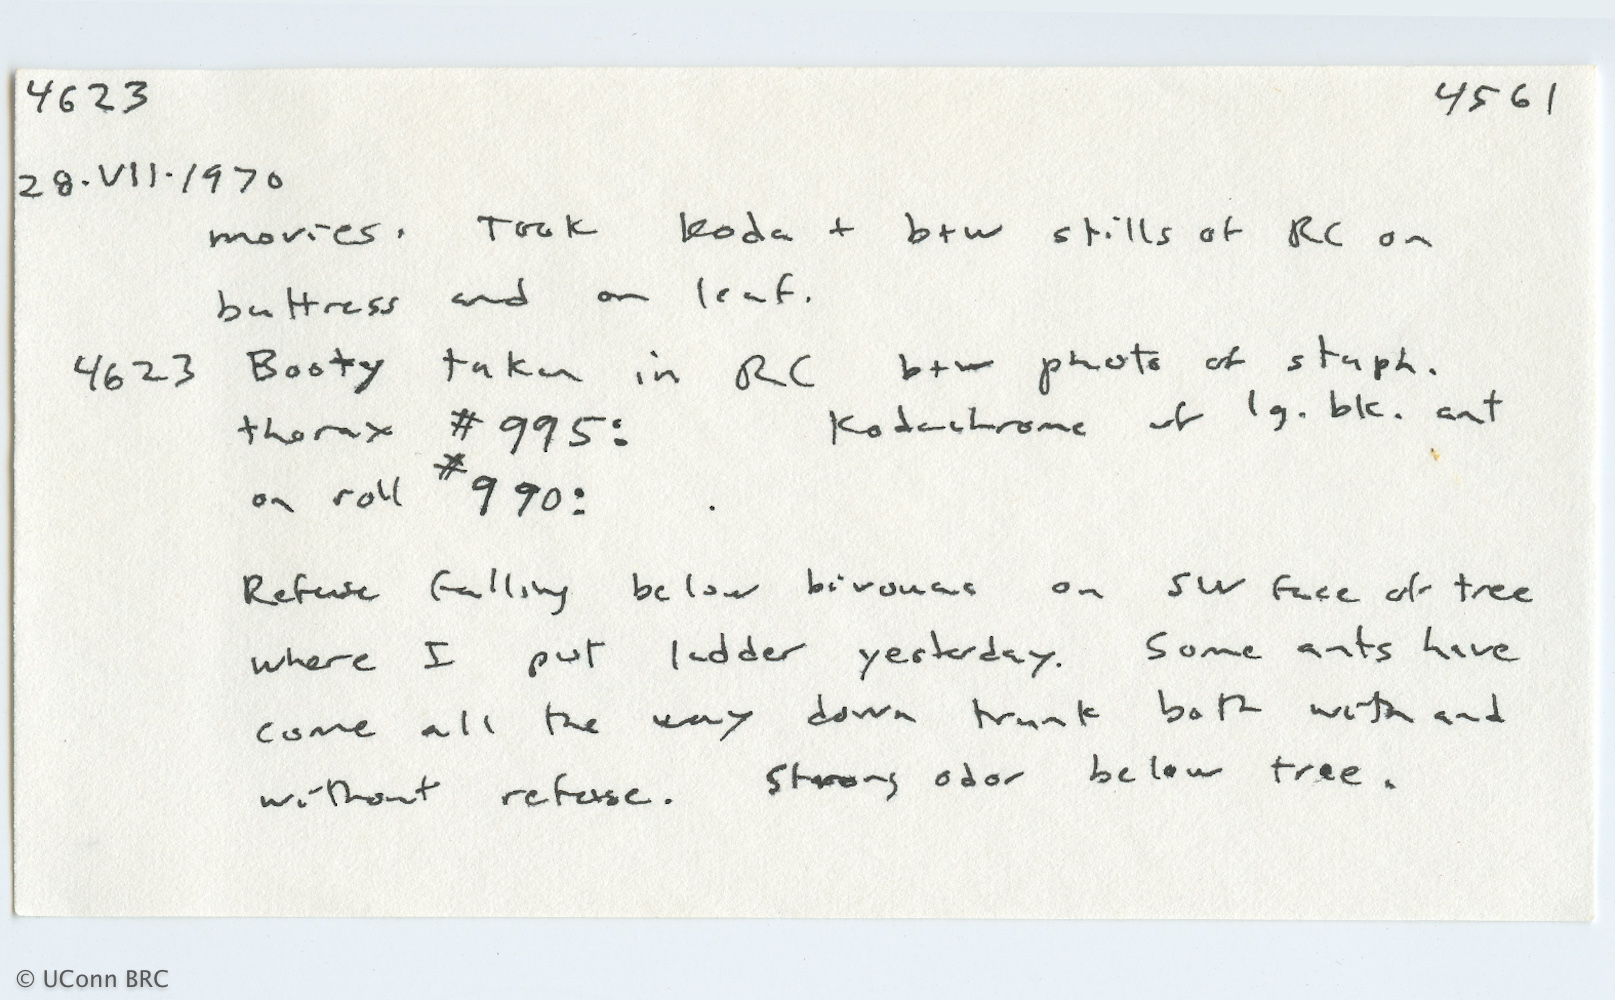 4623 4561
28.VII.1970
movies. Took Koda + b+w stills of RC on
buttress and on leaf.
4623 Booty taken in RC b+w photo of staph.
thorax #995: Kodachrome of lg. bk. ant
on roll #990: .
Refuse falling below bivouac on SW face of tree
where I put ladder yesterday. Some ants have
come all the way down trunk both with and
without refuse. Strong odor below tree.
© UConn BRC